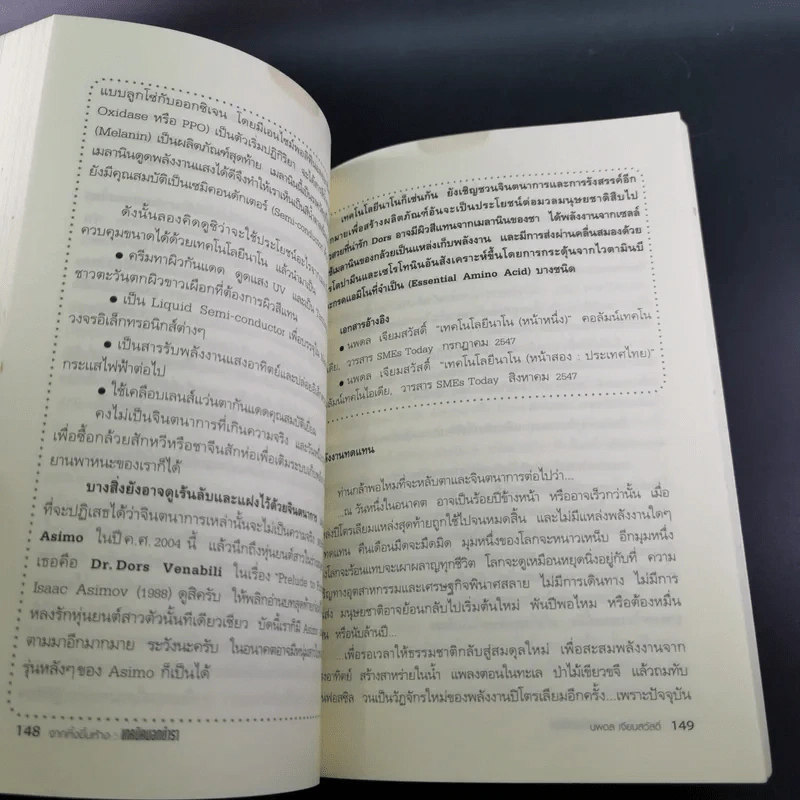 แบบลูกโซ่กับออกซิเจน โดยมีเอนไซม์
Oxidase หรือ PPO) เป็นตัวเริ่มปฏิกิริยา จะได้
(Melanin) เป็นผลิตภัณฑ์สุดท้าย เมลานินนี้เป็น
เมลานินดูดพลังงานแสงได้ดีจึงทำให้เราเห็นเป็นสี
ยังมีคุณสมบัติเป็นเซมิคอนดักเตอร์ (Semi-conductor
ดังนั้นลองคิดดูซิว่าจะใช้ประโยชน์อะไร
ควบคุมขนาดได้ด้วยเทคโนโลยีนาโน แล้วนำมา
● ครีมทาผิวกันแดด ดูดแสง UV และเป็น
ชาวตะวันตกผิวขาวเผือกที่ต้องการผิวสีแทน
● เป็น Liquid Semi-conductor เพื่อบรรจุใน
วงจรอิเล็กทรอนิกส์ต่างๆ
● เป็นสารรับพลังงานแสงอาทิตย์และปล่อย
กระแสไฟฟ้าต่อไป
● ใช้เคลือบเลนส์แว่นตากันแดดคุณสมบัติเยี่ยม
คงไม่เป็นจินตนาการที่เกินความจริง และวันหนึ่ง
เพื่อซื้อกล้วยสักหวีหรือชาจีนสักห่อเพื่อเติมระบบ
ยานพาหนะของเราก็ได้
บางสิ่งยังอาจดูเร้นลับและแฝงไว้ด้วยจินตนาการ
ที่จะปฏิเสธได้ว่าจินตนาการเหล่านั้นจะไม่เป็นความจริง
Asimo ในปี ค.ศ. 2004 นี้ แล้วนึกถึงหุ่นยนต์สาว
เธอคือ Dr. Dors Venabili ในเรื่อง "Prelude to
Isaac Asimov (1988) ดูสิครับ ให้พลิกอ่านบทสุดท้าย
หลงรักหุ่นยนต์สาวตัวนั้นทีเดียวเชียว บัดนี้เรามี Asimo
ตามมาอีกมากมาย ระวังนะครับ ในอนาคตอาจมีหนุ่ม
รุ่นหลังๆ ของ Asimo ก็เป็นได้
148 จากหิ้งยื่นห้าง :
เทคโนโลยีนาโนก็เช่นกัน ยังเชิญชวนจินตนาการและการรังสรรค์อีก
กมายเพื่อสร้างผลิตภัณฑ์อันจะเป็นประโยชน์ต่อมวลมนุษยชาติสืบไป
สวยที่น่ารัก Dors อาจมีผิวสีแทนจากเมลานินของชา ได้พลังงานจากเซลล์
เมลานินของกล้วยเป็นแหล่งเก็บพลังงาน และมีการส่งผ่านคลื่นสมองด้วย
โดปามีนและเซโรโทนินอันสังเคราะห์ขึ้นโดยการกระตุ้นจากไวตามินบี
ะกรดแอมิโนที่จำเป็น (Essential Amino Acid) บางชนิด
เอกสารอ้างอิง
● นพดล เจียมสวัสดิ์ "เทคโนโลยีนาโน (หน้าหนึ่ง)" คอลัมน์เทคโน
เดีย, วารสาร SMEs Today กรกฎาคม 2547
● นพดล เจียมสวัสดิ์ "เทคโนโลยีนาโน (หน้าสอง : ประเทศไทย)"
ลัมน์เทคโนไอเดีย, วารสาร SMEs Today สิงหาคม 2547
ลังงานทดแทน
ท่านกล้าพอไหมที่จะหลับตาและจินตนาการต่อไปว่า...
...ณ วันหนึ่งในอนาคต อาจเป็นร้อยปีข้างหน้า หรืออาจเร็วกว่านั้น เมื่อ
ลงปิโตรเลียมแหล่งสุดท้ายถูกใช้ไปจนหมดสิ้น และไม่มีแหล่งพลังงานใดๆ
ทดแทน คืนเดือนมืดจะมืดมิด มุมหนึ่งของโลกจะหนาวเหน็บ อีกมุมหนึ่ง
งโลกจะร้อนแทบจะเผาผลาญทุกชีวิต โลกจะดูเหมือนหยุดนิ่งอยู่กับที่ ความ
ริญทางอุตสาหกรรมและเศรษฐกิจพินาศสลาย ไม่มีการเดินทาง ไม่มีการ
ส่ง มนุษยชาติอาจย้อนกลับไปเริ่มต้นใหม่ พันปีพอไหม หรือต้องหมื่น
หรือนับล้านปี...
...เพื่อรอเวลาให้ธรรมชาติกลับสู่สมดุลใหม่ เพื่อสะสมพลังงานจาก
งอาทิตย์ สร้างสาหร่ายในน้ำ แพลงตอนในทะเล ป่าไม้เขียวขจี แล้วถมทับ
นฟอสซิล วนเป็นวัฏจักรใหม่ของพลังงานปิโตรเลียมอีกครั้ง...เพราะปัจจุบัน
นพดล เจียมสวัสดิ์ 149